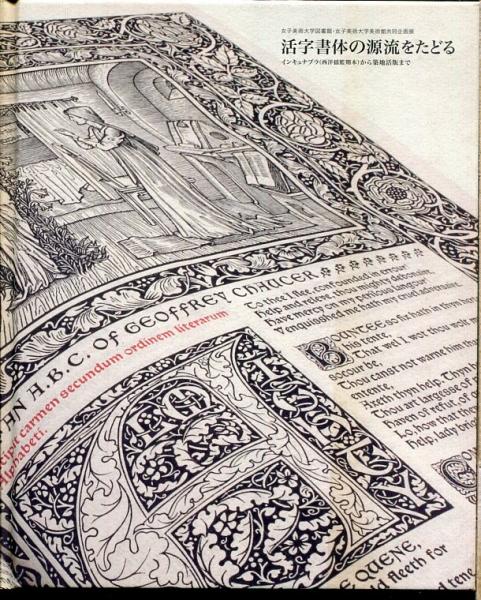 女子美術大学図書館・女子美術大学美術館共同企画展
活字書体の源流をたどる
インキュナブラ(西洋揺籃期本)から築地活版まで
AN A.B.C. OF GEOFFREY CHAUCER
carmen secundum ordinem literarum
Alphabeti.
To thee I flee, confounded in errour
Help and releve, thou mighty debonaire,
Have mercy on my perilous langour
Venquisshed me hath my cruel adversaire.
BOUNTEE so fix hath in thyn
his tente,
That wel I wot thou wolt
socour be,
Thou canst not warne him
entente,
Axeth thyn help. Thyn
Thou art largesse of
Haven of refut, of
Lo, how that
Help, lady
E QUENE,
fleeth for